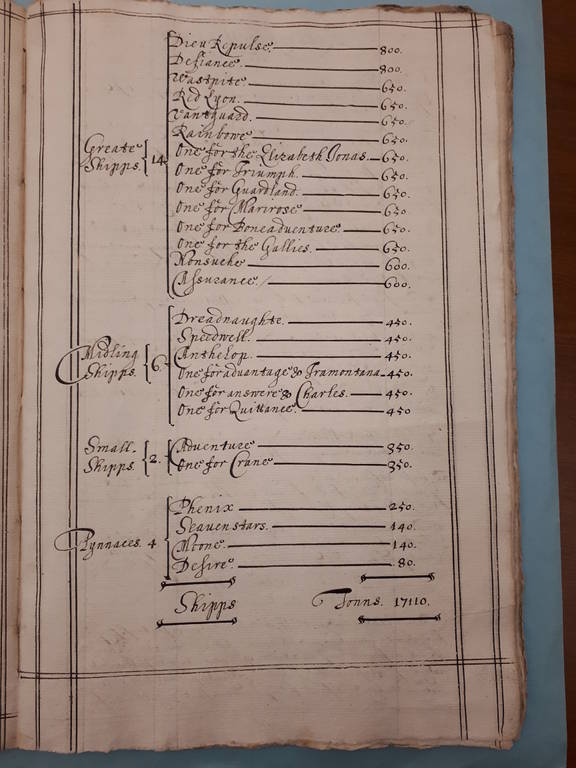 Dieu Repulse. 800.
Defiance. 800.
Wastpite. 650.
Red Lyon. 650.
Vantguard. 650.
Rainbowe 650.
One for the Elizabeth Jonas. 650.
One for Triumph. 650.
Greate Shipps. 14.
One for Guardland. 650.
One for Marirose 650.
One for Boneadventure. 650.
One for the Gallies. 650.
Nonsuche 600.
Assurance. 600.
Dreadnaughte. 450.
Speedwell. 450.
Midling Shipps. 6.
Anthelop. 450.
One for advantage & Tramontana 450.
One for answere & Charles. 450.
One for Quittance. 450
Small Shipps. 2.
Adventure 350.
One for Crane 350.
Phenix 250.
Seavenstars. 140.
Pynnaces. 4
Moone. 140.
Desire. 80.
Shipps Tonns. 17110.